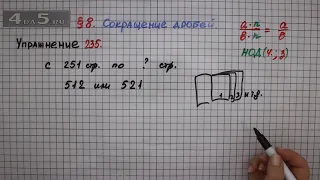 4 5.ru
§8. Сокращение дробей.
a·n / b·n = a / b
Упражнение 235.
НОД(4; 3)
с 251 стр. по ? стр.
512 или 521
1 2 3 и т.д.